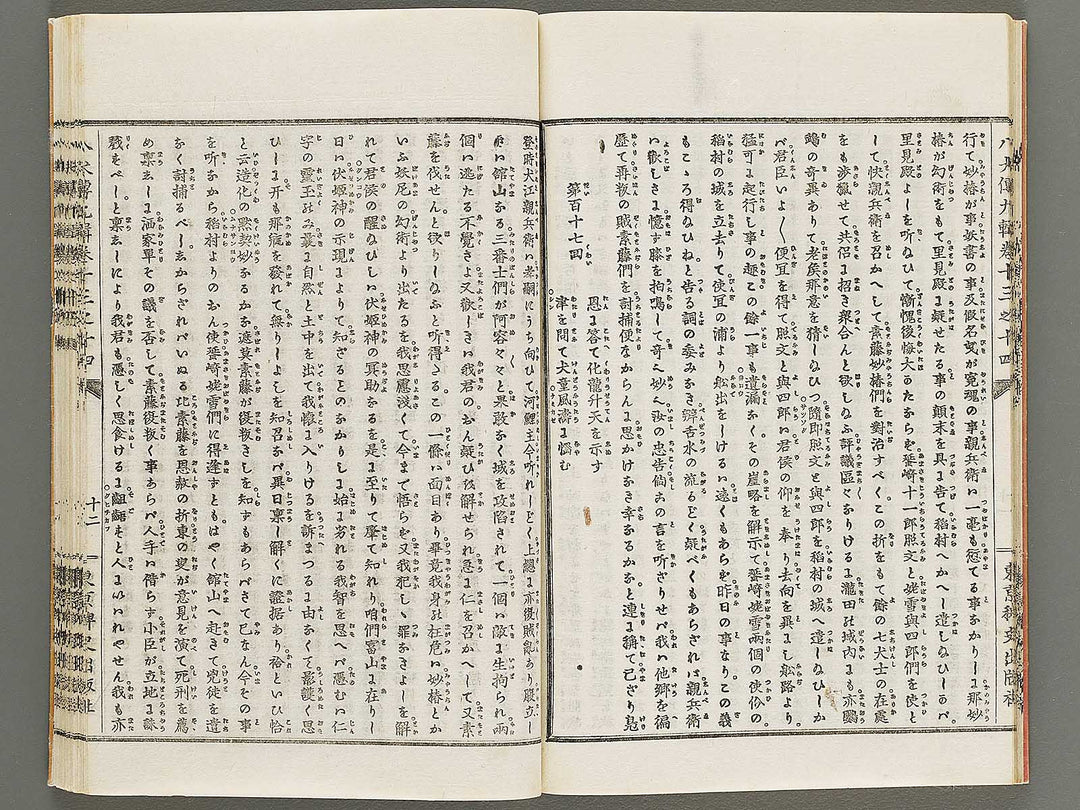 八犬傳九輯卷廿三之廿四
東京稗史出版社
行て妙椿が事妖書の事及假名曳が寃魂の事親兵衛ハ一毫も愆てる事なかりしュ那妙
椿が幻術をもて里見殿ュ疑せたる事の顛末を具ュ告て稻村へかへし遣しぬひしるバ
里見殿よしを听ぬひて慚愧後悔大かたならず蜑崎十一郎照文と姥雪與四郎們を使と
して快親兵衛を召かへして素藤妙椿們を對治すべくこの折をもて餘の七犬士の在處
をも渉獵せて共侶ュ招き聚合んと欲しぬふ評議區々なりけるュ瀧田の城內ュも亦鷗
鴫の奇異ありて老矦那意を猜しぬひつ隨卽照文と與四郎を稻村の城へ遣しぬひしか
バ君臣いよ〳〵便宜を得て照文と與四郎ハ君侯の仰を奉り去向を異ュし舩路より
猛可ュ起行し事の趣この餘の事も遺漏なくその崖略を解示て蜑崎姥雪兩個の使价の
稻村の城を立去りて便宜の浦より舩出をしけるハ遠くもあらぬ昨日の事なりこの義
もこゝろ得ぬひねと告る詞の委みなき辨舌水の流るごく疑べくもあらざれバ親兵衛
ハ歡しさュ憶ず膝を拍鳴して奇々妙々汝の忠告倘この言を听ざりせバ我ハ他郷を徧
歷て再叛の賊素藤們を討捕便なからんュ思ひかけなき幸なるかなと連ュ稱て已ざり鳬
第百十七囘
恩ュ答て化龍升天を示す
津を問て犬童風濤ュ悩む
登時犬江親兵衛ハ老嗣にうち向ひて河鯉主今听れしごく上總ュ亦復賊亂あり殿立し
ぬハ館山なる三番士們が阿容々々と果敢なく城を攻陷されて一個ハ敵ュ生拘られ兩
個ハ迯たる不覺さよ又歡しきハ我君のおん疑ひ氷解せられ急ュ仁を召かへして又素
藤を伐せんと欲りしぬふと听得さるこの一條ハ面目あり畢竟我身の枉危ハ妙椿とか
いふ妖尼の幻術より出たるを我思慮淺くて今まで悟らず又我犯しゝ罪なきよしを解
れて君侯の醒ぬひしハ伏姬神の冥助なるを是ュ至りて肇て知れり咱們富山ュ在りし
日ハ伏姬神の示現ュよりて知ざることのなかりしュ始ュ劣れる我智を思へバ憑むハ仁
字の靈玉のみ最ュ自然と土中を出て我懷ュ入りけるを訴まつるュ由なくて最護く思
ひしュ开も那瘢を發れて無りしよしを知召なバ異日稟し解くに證据あり袷といひ恰
と云造化の默契妙なるかな遮莫素藤が復叛きしを知ずもあらバさて已なん今その事
を听ながら稻村よりのおん使蜑崎姥雪們に得逢ずともはやく館山へ赴きて兇徒を遺
なく討捕るべしゑからざれバいぬる比素藤を恩赦の折東の叟が意見を演て死刑を薦
め稟えしュ洒家單その議を否して素藤復叛く事あらバ人手ハ借らず小臣が立地ュ誅
戮をべしと稟えしにより我君も憑もしく思食けるュ齟齬もと人ュいハれやせん我も亦
八犬傳九輯卷廿三之廿四
十二
東京稗史出版社